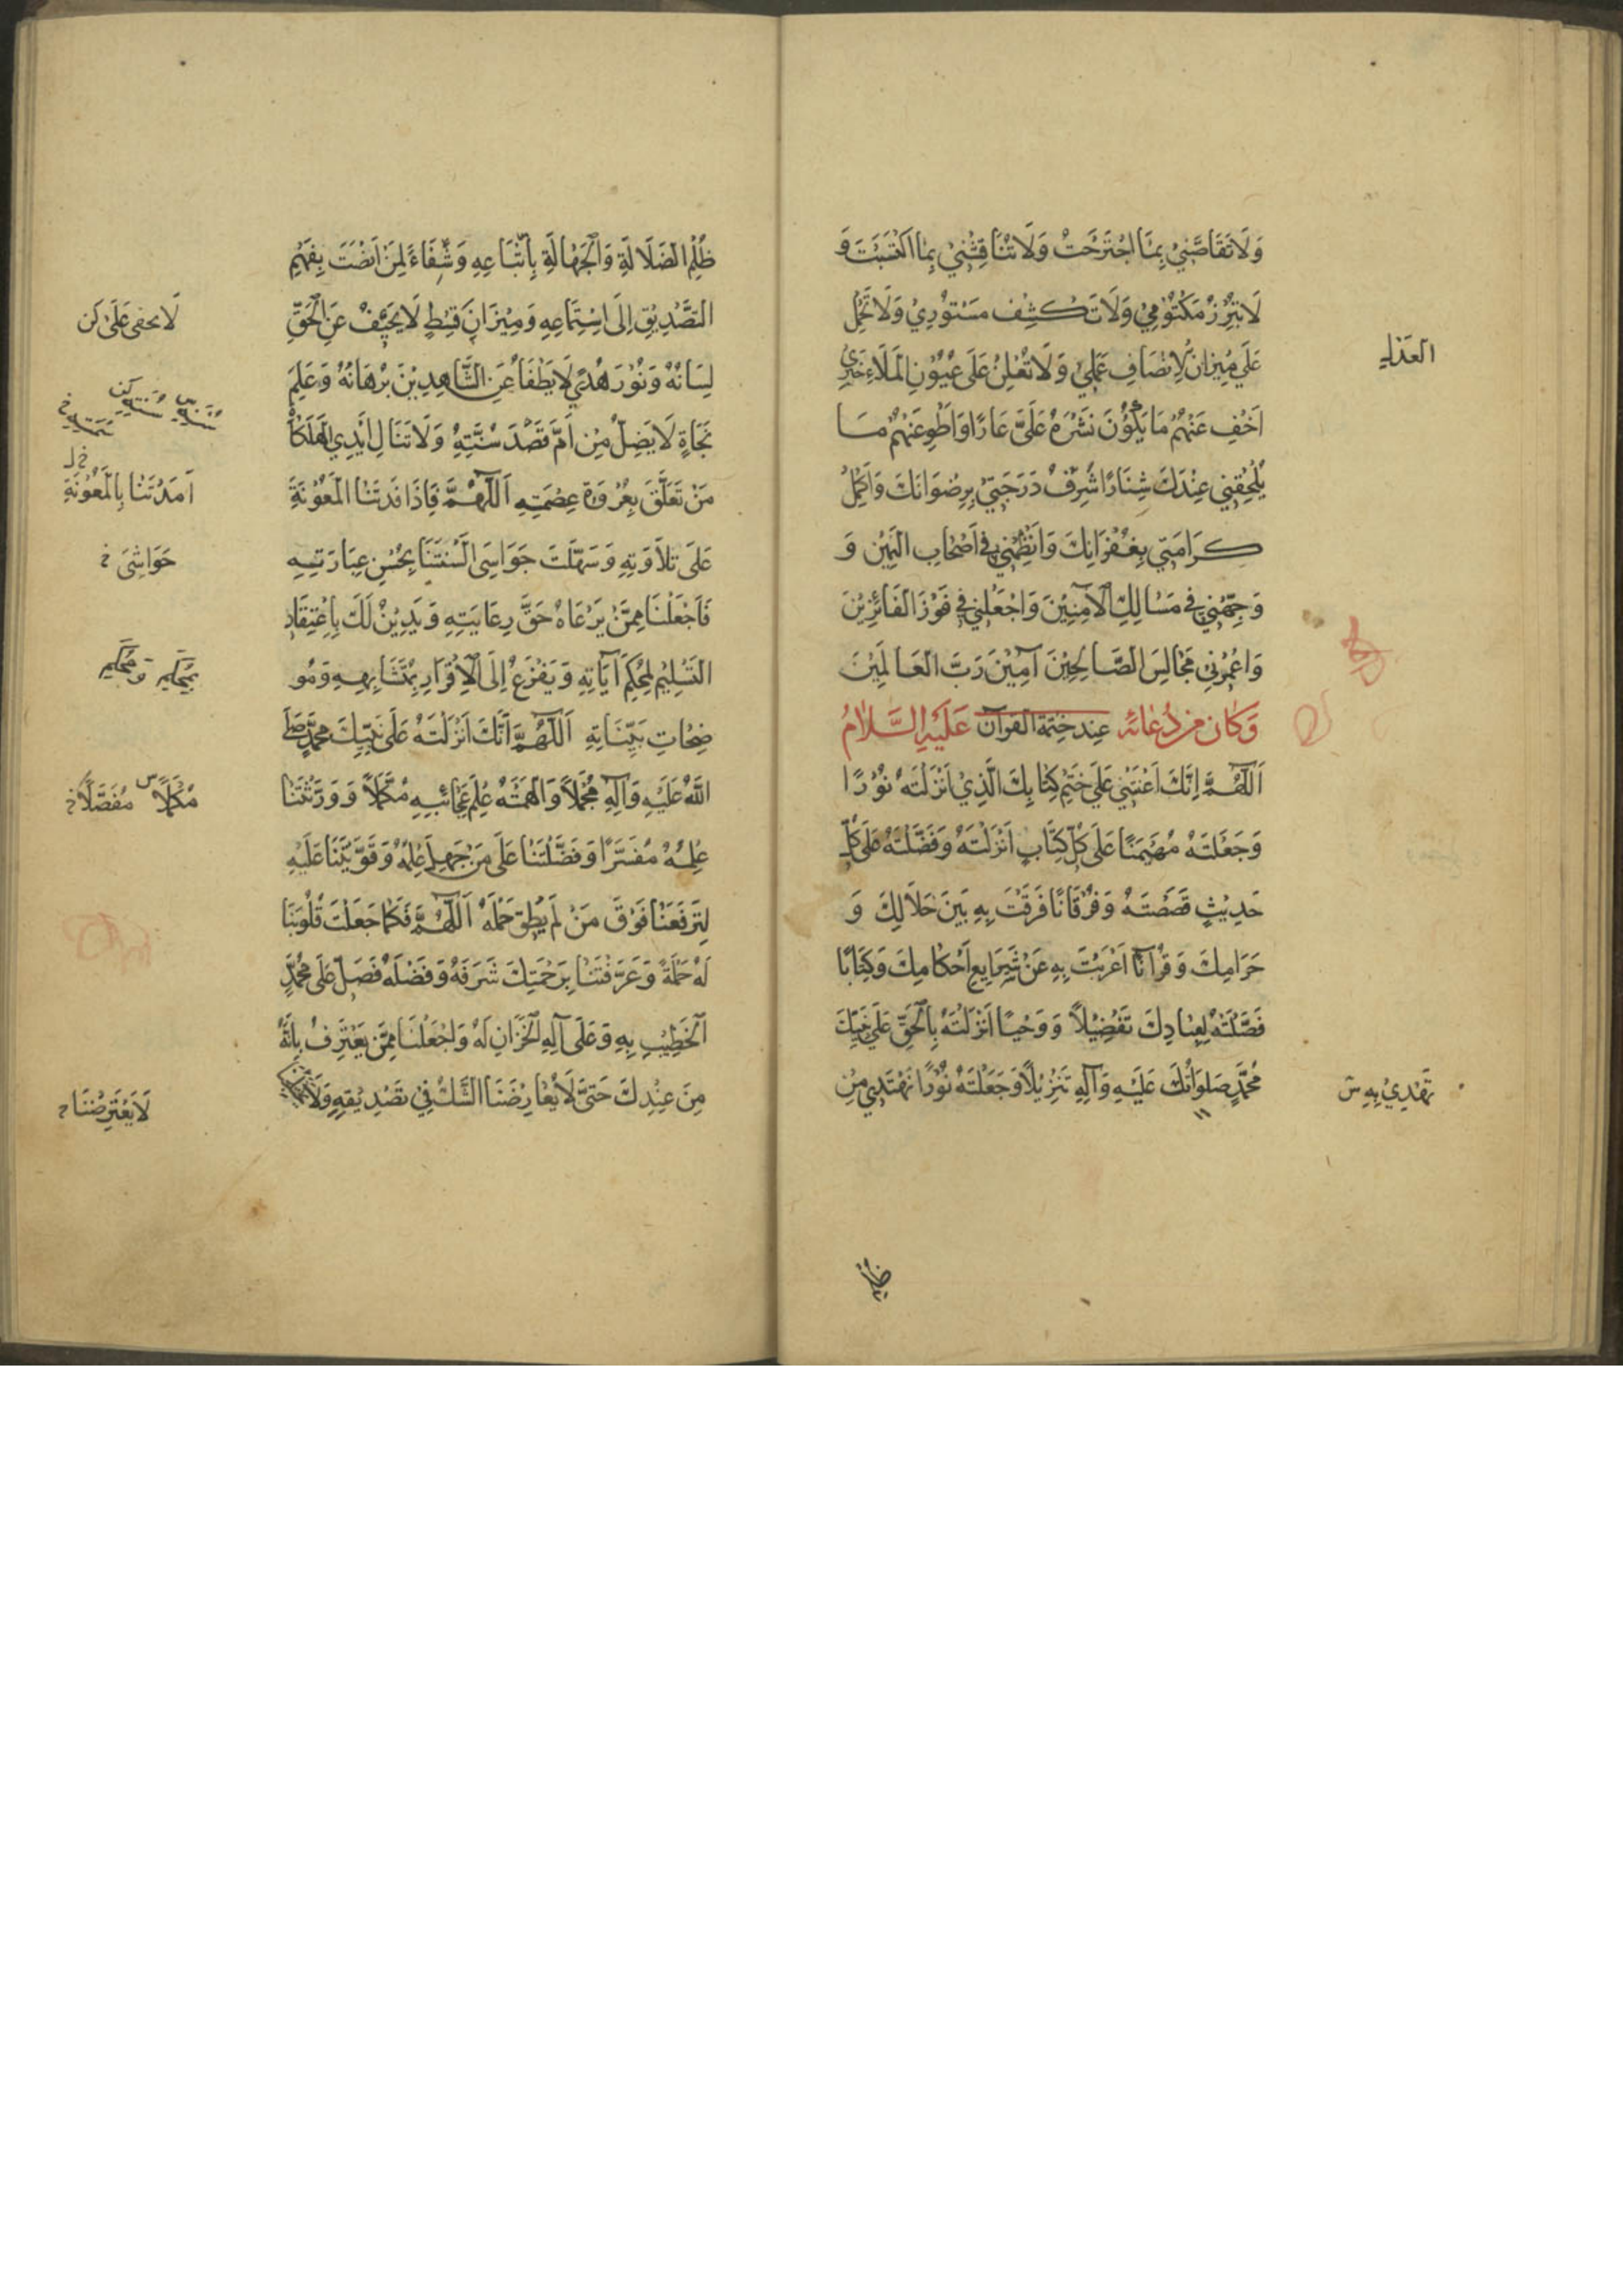 وَلَا تُقَاصَّنِي بِمَا اجْتَرَحْتُ وَلَا تُنَاقِشْنِي بِمَا اكْتَسَبْتُ وَ
لَا تُبْرِزْ مَكْتُومِي وَلَا تَكْشِفْ مَسْتُورِي وَلَا تَحْمِلْ
عَلَى مِيزَانِ الْإِنْصَافِ عَمَلِي وَلَا تُعْلِنْ عَلَى عُيُونِ الْمَلَاءِ خَبَرِي
العدل
اَخْفِ عَنْهُمْ مَا يَكُونُ نَشْرُهُ عَلَيَّ عَارًا وَاطْوِ عَنْهُمْ مَا
يُلْحِقُنِي عِنْدَكَ شَنَارًا شَرِّفْ دَرَجَتِي بِرِضْوَانِكَ وَاَكْمِلْ
كَرَامَتِي بِغُفْرَانِكَ وَانْظِمْنِي فِي اَصْحَابِ الْيَمِينِ وَ
وَجِّهْنِي فِي مَسَالِكِ الْآمِنِينَ وَاجْعَلْنِي فِي فَوْزِ الْفَائِزِينَ
وَاعْمُرْنِي مَجَالِسَ الصَّالِحِينَ آمِينَ رَبَّ الْعَالَمِينَ
وَكَانَ مِنْ دُعَائِهِ عِنْدَ خَتْمَةِ القرآن عَلَيْهِ السَّلَامُ
اَللّٰهُمَّ اِنَّكَ اَعَنْتَنِي عَلَى خَتْمِ كِتَابِكَ الَّذِي اَنْزَلْتَهُ نُورًا
وَجَعَلْتَهُ مُهَيْمِنًا عَلَى كُلِّ كِتَابٍ اَنْزَلْتَهُ وَفَضَّلْتَهُ عَلَى كُلِّ
حَدِيثٍ قَصَصْتَهُ وَفُرْقَانًا فَرَقْتَ بِهِ بَيْنَ حَلَالِكَ وَ
حَرَامِكَ وَقُرْآنًا اَعْرَبْتَ بِهِ عَنْ شَرَايِعِ اَحْكَامِكَ وَكِتَابًا
فَصَّلْتَهُ لِعِبَادِكَ تَفْصِيلًا وَوَحْيًا اَنْزَلْتَهُ بِالْحَقِّ عَلَى نَبِيِّكَ
مُحَمَّدٍ صَلَوَاتُكَ عَلَيْهِ وَآلِهِ تَنْزِيلًا وَجَعَلْتَهُ نُورًا نَهْتَدِي مِنْ
تَهْدِي بِهِ
ظُلَمِ الضَّلَالَةِ وَالْجَهَالَةِ بِاتِّبَاعِهِ وَشِفَاءً لِمَنْ اَنْصَتَ بِفَهْمِ
التَّصْدِيقِ اِلَى اسْتِمَاعِهِ وَمِيزَانَ قِسْطٍ لَا يَحِيفُ عَنِ الْحَقِّ
لِسَانُهُ وَنُورَ هُدًى لَا يَطْفَأُ عَنِ الشَّاهِدِينَ بُرْهَانُهُ وَعَلَمَ
نَجَاةٍ لَا يَضِلُّ مَنْ اَمَّ قَصْدَ سُنَّتِهِ وَلَا تَنَالُ اَيْدِي الْهَلَكَاتِ
مَنْ تَعَلَّقَ بِعُرْوَةِ عِصْمَتِهِ اَللّٰهُمَّ فَاِذَا فَدْتَنَا الْمَعُونَةَ
اَمْدَدْتَنَا بِالْمَعُونَةِ
عَلَى تِلَاوَتِهِ وَسَهَّلْتَ جَوَاسِيَ اَلْسِنَتِنَا بِحُسْنِ عِبَارَتِهِ
حَوَاشِيَ خ
فَاجْعَلْنَا مِمَّنْ يَرْعَاهُ حَقَّ رِعَايَتِهِ وَيَدِينُ لَكَ بِاعْتِقَادِ
التَّسْلِيمِ لِمُحْكَمِ آيَاتِهِ وَيَفْزَعُ اِلَى الْاِقْرَارِ بِمُتَشَابِهِهِ وَمُو
ضِحَاتِ بَيِّنَاتِهِ اَللّٰهُمَّ اِنَّكَ اَنْزَلْتَهُ عَلَى نَبِيِّكَ مُحَمَّدٍ صَلَّى
اللّٰهُ عَلَيْهِ وَآلِهِ مُجْمَلًا وَاَلْهَمْتَهُ عِلْمَ عَجَائِبِهِ مُكَمَّلًا وَوَرَّثْتَنَا
مُكَمَّلًا س مُفَصَّلًا خ
عِلْمَهُ مُفَسَّرًا وَفَضَّلْتَنَا عَلَى مَنْ جَهِلَ عِلْمَهُ وَقَوَّيْتَنَا عَلَيْهِ
لِتَرْفَعَنَا فَوْقَ مَنْ لَمْ يُطِقْ حَمْلَهُ اَللّٰهُمَّ فَكَمَا جَعَلْتَ قُلُوبَنَا
لَهُ حَمَلَةً وَعَرَّفْتَنَا بِرَحْمَتِكَ شَرَفَهُ وَفَضْلَهُ فَصَلِّ عَلَى مُحَمَّدٍ
الْخَطِيبِ بِهِ وَعَلَى آلِهِ الْخُزَّانِ لَهُ وَاجْعَلْنَا مِمَّنْ يَعْتَرِفُ بِاَنَّهُ
مِنْ عِنْدِكَ حَتَّى لَا يُعَارِضَنَا الشَّكُّ فِي تَصْدِيقِهِ وَلَا
لَا يَعْتَرِضَنَا خ